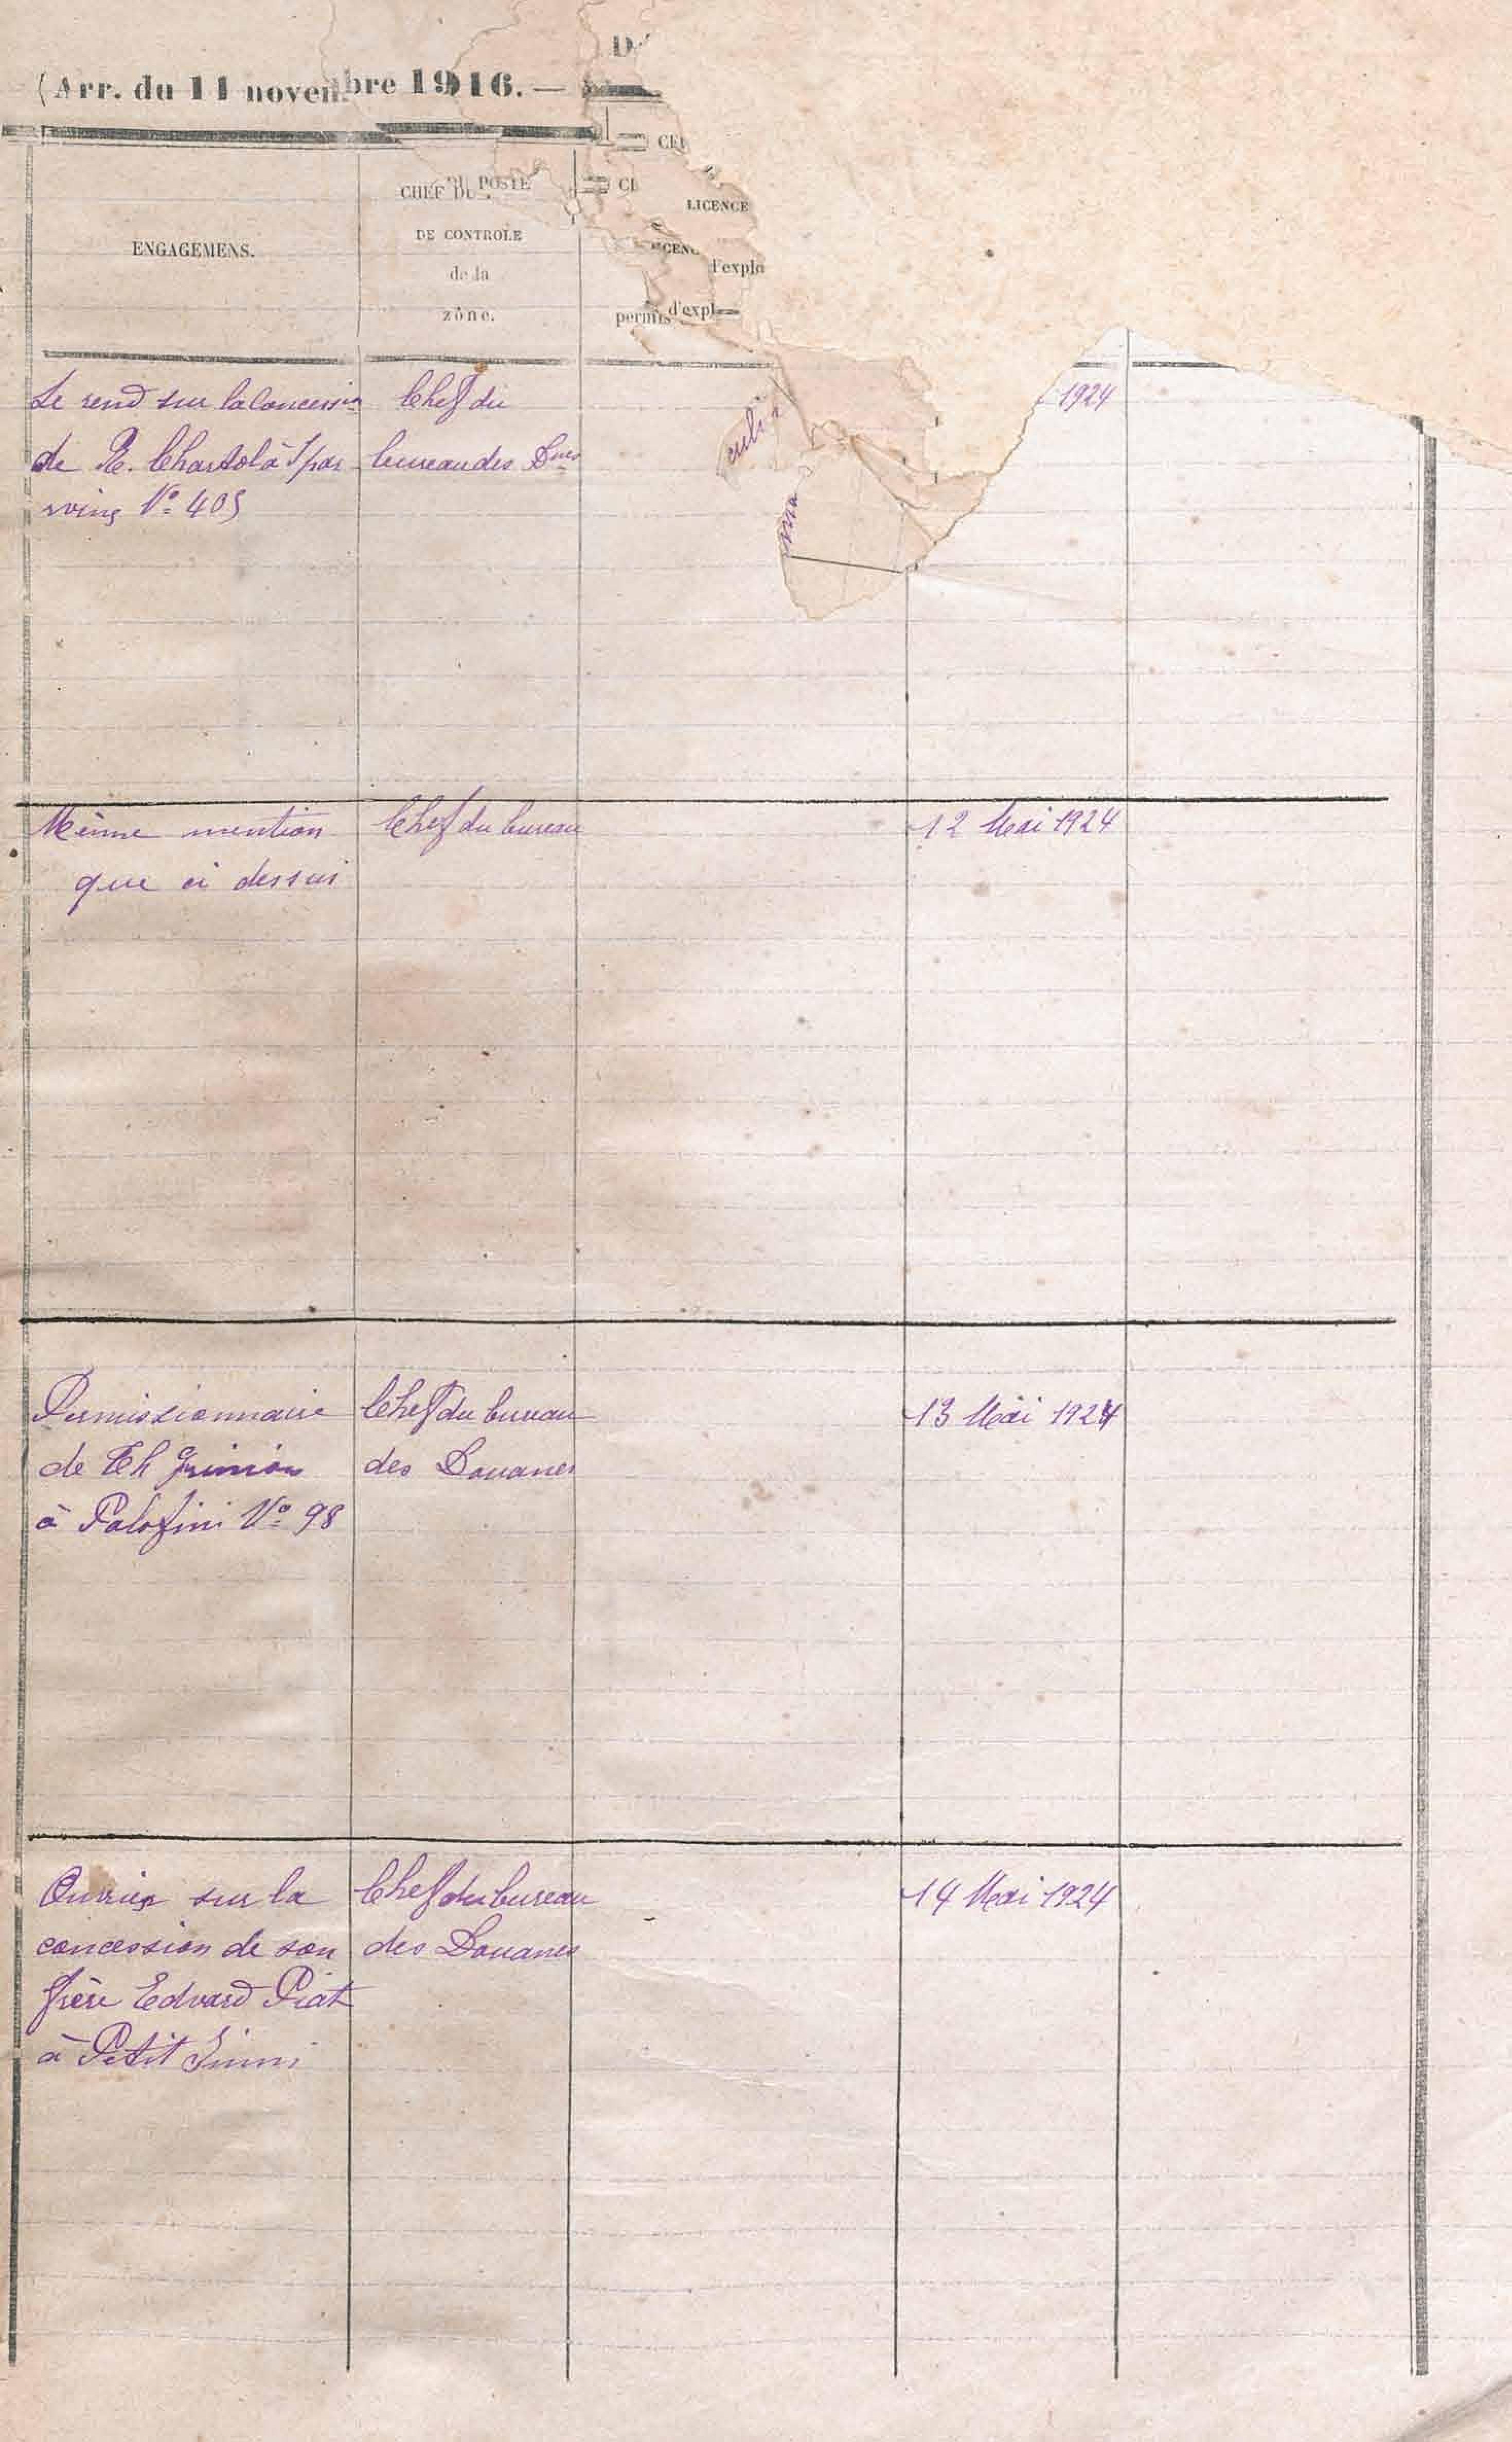 (Arr. du 11 novembre 1916. —
ENGAGEMENS.
CHEF DU POSTE
DE CONTROLE
de la
zône.
LICENCE
permis d'expl
l'explo
Se rend sur la Concession
de E. Chartol à Spar
wing N° 405
Chef du
bureau des Dnes
1924
Même mention
que ci dessus
Chef du bureau
12 Mai 1924
Permissionnaire
de Th
à Palofini N° 98
Chef du bureau
des Douanes
13 Mai 1924
Ouvrier sur la
concession de son
frère Edvard Piat
à Petit Inini
Chef du bureau
des Douanes
14 Mai 1924